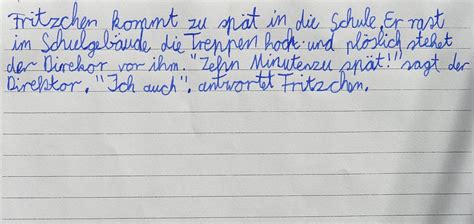 Fritzchen kommt zu spät in die Schule. Er rast
im Schulgebäude die Treppen hoch und plöslich stehet
der Direkor vor ihm. "Zehn Minutenzu spät!" sagt der
Direktor. "Ich auch", antwortet Fritzchen.